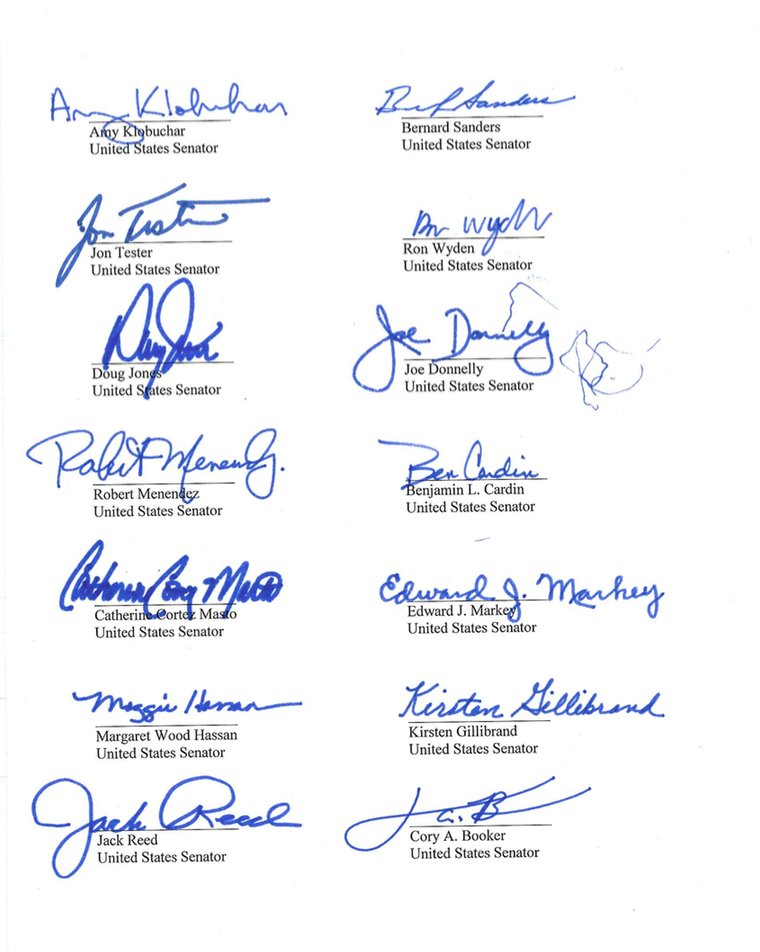 Amy Klobuchar
Amy Klobuchar
United States Senator
Bernard Sanders
United States Senator
Jon Tester
Jon Tester
United States Senator
Ron Wyden
Ron Wyden
United States Senator
Doug Jones
Doug Jones
United States Senator
Joe Donnelly
Joe Donnelly
United States Senator
Robert Menendez
Robert Menendez
United States Senator
Ben Cardin
Benjamin L. Cardin
United States Senator
Catherine Cortez Masto
Catherine Cortez Masto
United States Senator
Edward J. Markey
Edward J. Markey
United States Senator
Maggie Hassan
Margaret Wood Hassan
United States Senator
Kirsten Gillibrand
Kirsten Gillibrand
United States Senator
Jack Reed
Jack Reed
United States Senator
Cory A. Booker
United States Senator